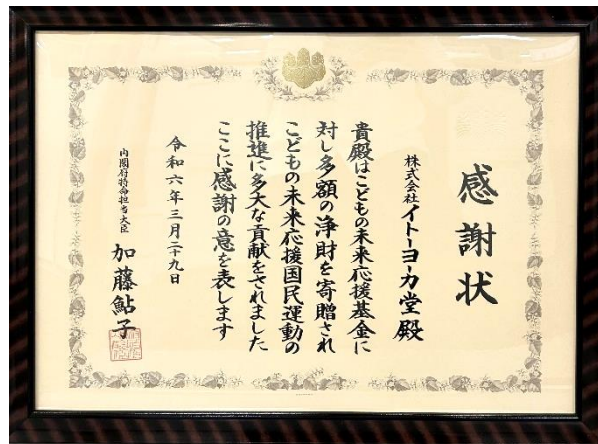 感謝状
株式会社イトーヨーカ堂殿
貴殿はこどもの未来応援基金に
対し多額の浄財を寄贈され
こどもの未来応援国民運動の
推進に多大な貢献をされました
ここに感謝の意を表します
令和六年三月二十九日
内閣府特命担当大臣
加藤鮎子